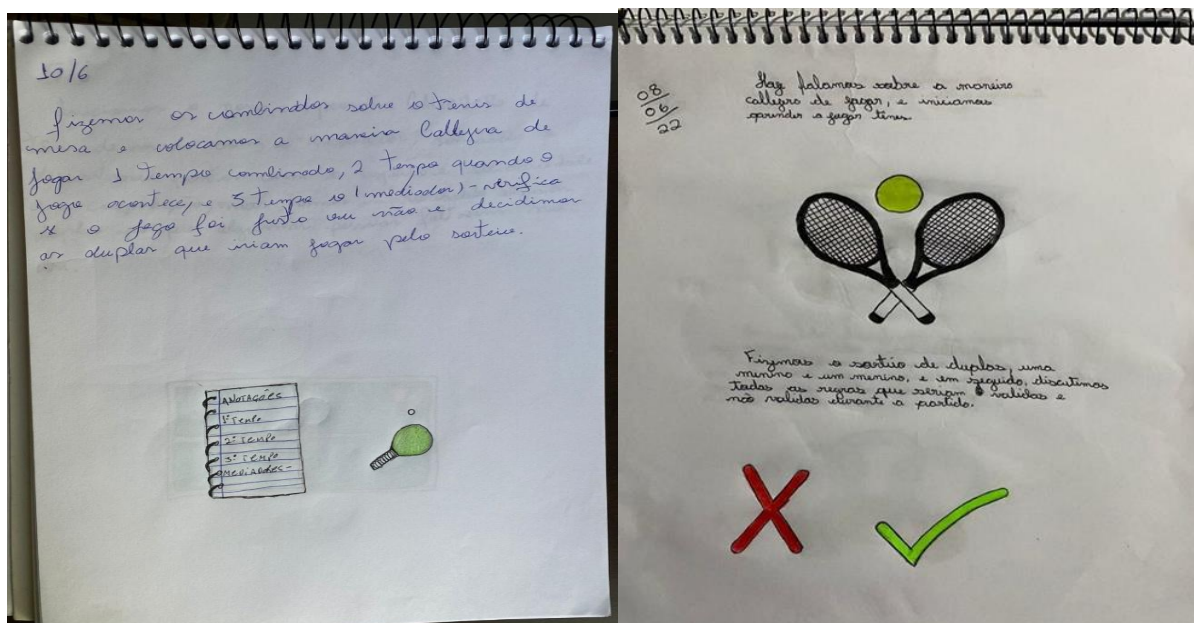 10/6
fizemos os combinados sobre o tenis de
mesa e colocamos a maneira Callejera de
jogar 1 tempo combinado, 2 tempo quando o
jogo acontece, e 3 tempo o (mediador) - verifica
se o jogo foi justo ou não e decidimos
as duplas que iriam jogar pelo sorteio.
ANOTAÇÕES
1º TEMPO
2º TEMPO
3º TEMPO
MEDIADORES-
08
06
22
Hoje falamos sobre a maneira
callejera de jogar, e iniciamos
aprender a jogar tênes.
Fizemos o sorteio de duplas, uma
menina e um menino, e em seguida, discutimos
todas as regras que seriam validas e
não validas durante a partida.